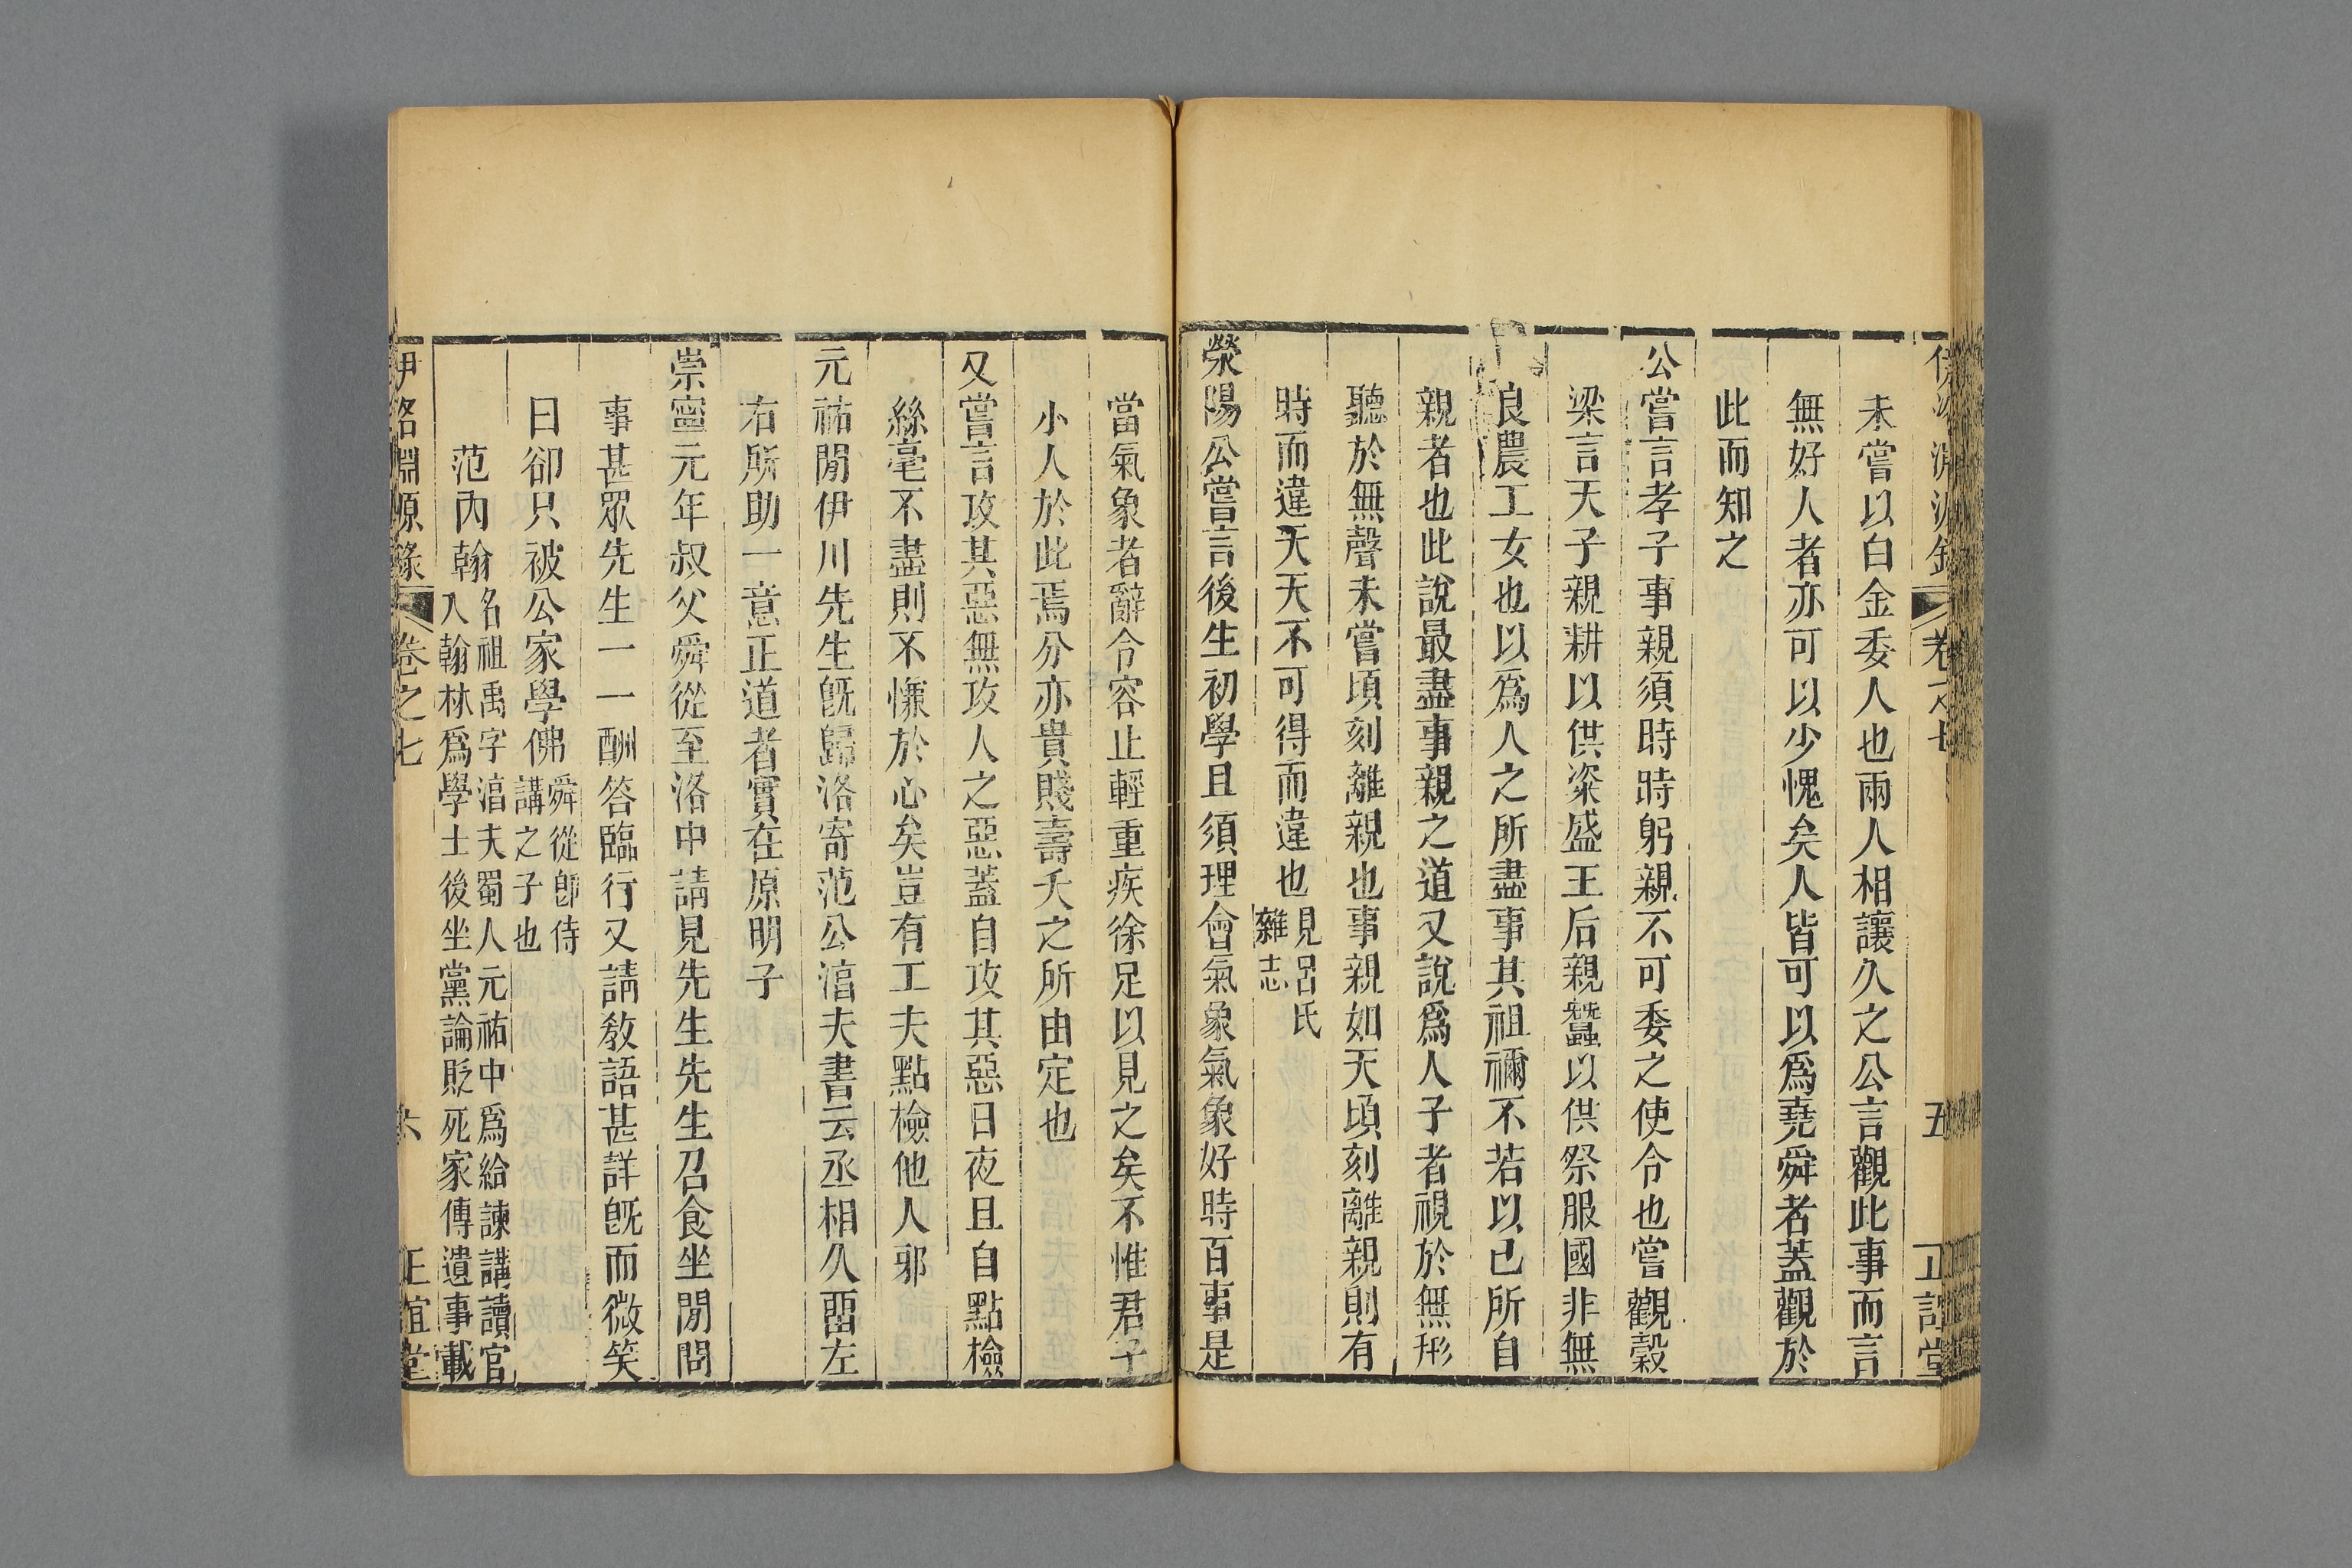 伊洛淵源錄 卷之七 五 正誼堂
未嘗以白金委人也兩人相讓久之公言觀此事而言
無好人者亦可以少愧矣人皆可以為堯舜者蓋觀於
此而知之
公嘗言孝子事親須時時躬親不可委之使令也嘗觀穀
梁言天子親耕以供粢盛王后親蠶以供祭服國非無
良農工女也以為人之所盡事其祖禰不若以已所自
親者也此說最盡事親之道又說為人子者視於無形
聽於無聲未嘗頃刻離親也事親如天頃刻離親則有
時而違天天不可得而違也見呂氏
雜志
滎陽公嘗言後生初學且須理會氣象氣象好時百事是
當氣象者辭令容止輕重疾徐足以見之矣不惟君子
小人於此焉分亦貴賤壽夭之所由定也
又嘗言攻其惡無攻人之惡蓋自攻其惡日夜且自點檢
絲毫不盡則不慊於心矣豈有工夫點檢他人邪
元祐閒伊川先生旣歸洛寄范公淳夫書云丞相久留左
右所助一意正道者實在原明子
崇寧元年叔父舜從至洛中請見先生先生召食坐閒問
事甚眾先生一一酬答臨行又請教語甚詳旣而微笑
曰卻只被公家學佛舜從卽侍
講之子也
范內翰名祖禹字淳夫蜀人元祐中為給諫講讀官
入翰林為學士後坐黨論貶死家傳遺事載
伊洛淵源錄 卷之七 六 正誼堂